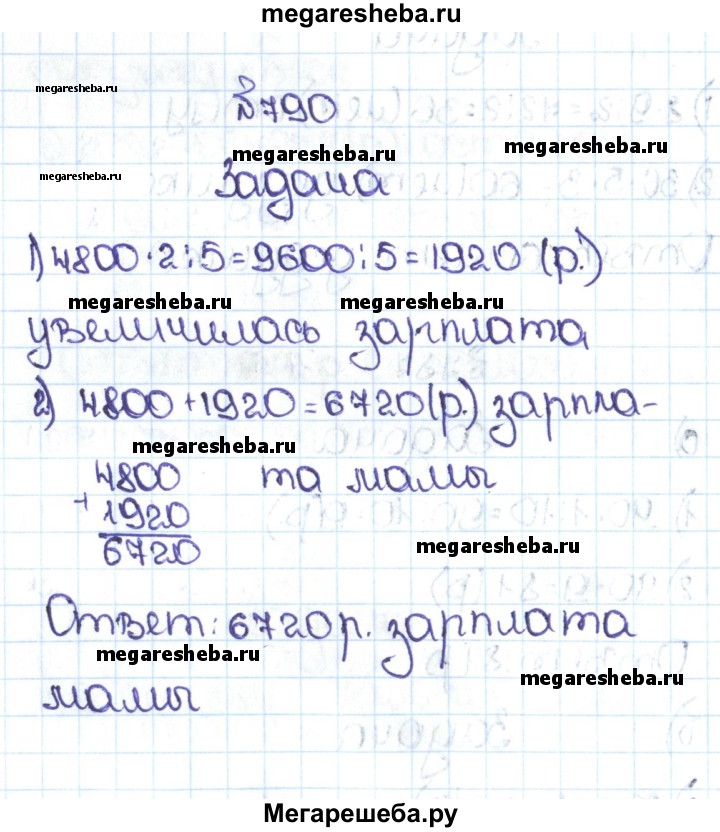 megaresheba.ru
megaresheba.ru
№790
megaresheba.ru megaresheba.ru
megaresheba.ru
Задача
1) 4800·2:5=9600:5=1920 (р.)
megaresheba.ru megaresheba.ru
увеличилась зарплата
2) 4800+1920=6720(р.) зарпла-
megaresheba.ru
4800 та мамы
+
1920
megaresheba.ru
6720
Ответ: 6720р. зарплата
megaresheba.ru
megaresheba.ru
мамы
Мегарешеба.ру